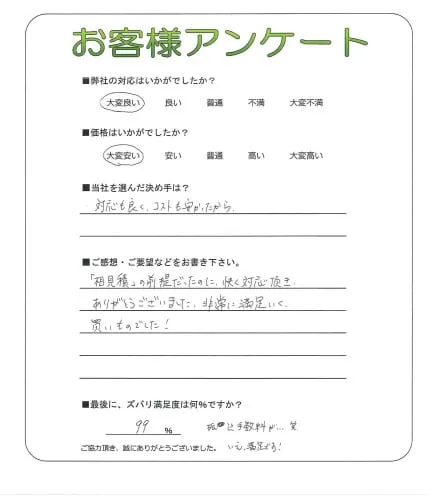 お客様アンケート
■弊社の対応はいかがでしたか？
大変良い 良い 普通 不満 大変不満
■価格はいかがでしたか？
大変安い 安い 普通 高い 大変高い
■当社を選んだ決め手は？
・対応も良く、コストも安かったから。
■ご感想・ご要望などをお書き下さい。
「相見積」の前提だったのに、快く対応頂き、
ありがとうございました。非常に満足いく、
買いものでした！
■最後に、ズバリ満足度は何％ですか？
99 ％ 振込手数料が… 笑
ご協力頂き、誠にありがとうございました。 いえ、満足です！